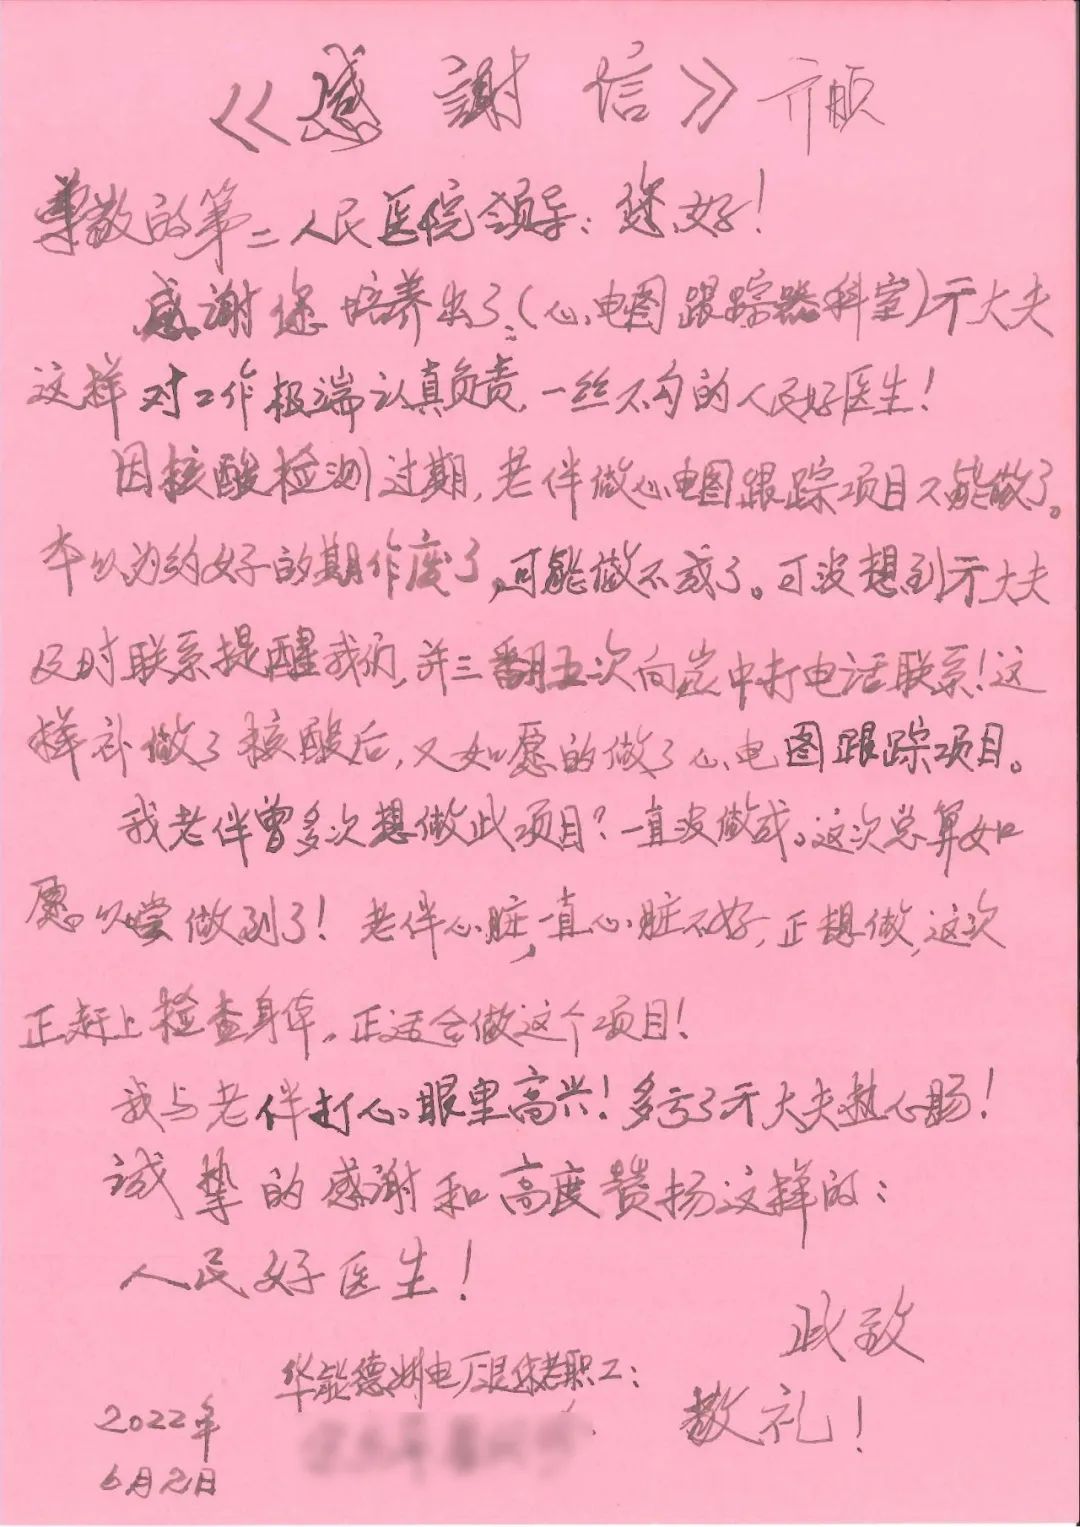 《感謝信》
尊敬的第二人民医院领导：您好！
感谢您培养出了：(心电图跟踪器科室)亓大夫
这样对工作极端认真负责，一丝不勾的人民好医生！
因核酸检测过期，老伴做心电图跟踪项目不能做了。
本以为约好的期作废了，可能做不成了。可没想到亓大夫
及时联系提醒我们，并三翻五次向 中打电话联系！这
样补做了核酸后，又如愿的做了心电图跟踪项目。
我老伴曾多次想做此项目？一直没做成。这次总算如
愿以尝做到了！老伴心脏，一直心脏不好，正想做，这次
正赶上检查身体，正适合做这个项目！
我与老伴打心眼里高兴！多亏了亓大夫热心肠！
诚挚的感谢和高度赞扬这样的：
人民好医生！
此致
敬礼！
华能德州电厂退休老职工：
2022年
6月2日